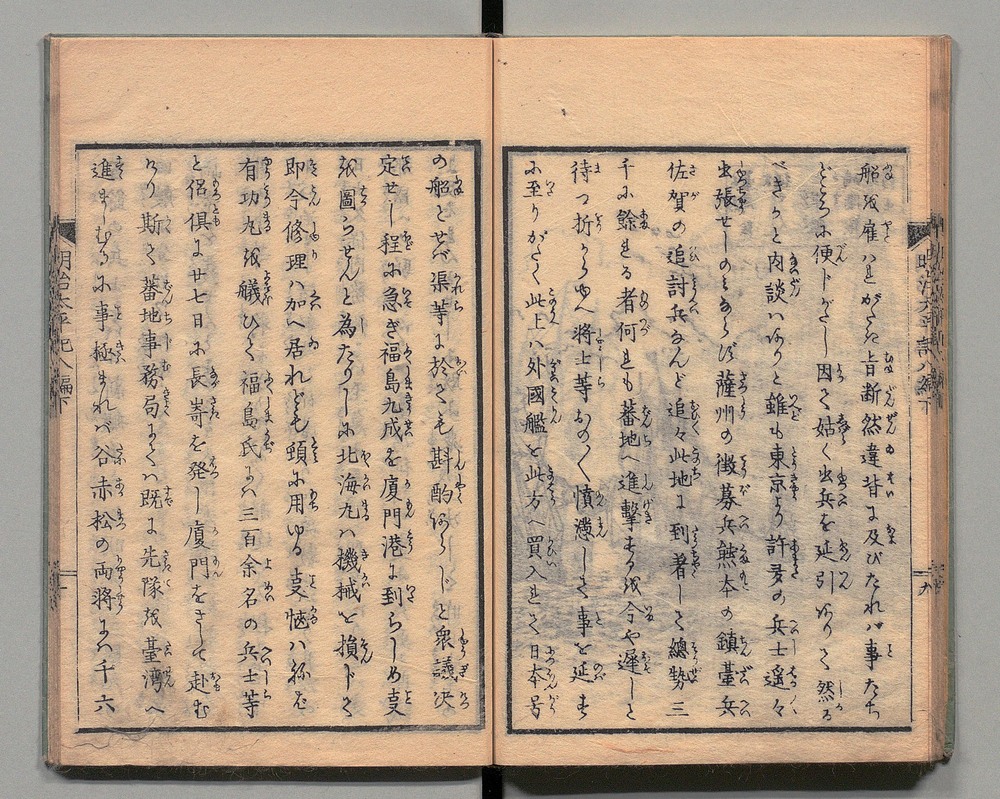 船を雇ハれがたき旨断然違背に及びたれバ事たち
どころに便トがたし因て姑く出兵を延引ありて然る
べきかと内談ハありと雖も東京より許多の兵士遥々
出張せしのみならず薩州の徴募兵熊本の鎮臺兵
佐賀の追討兵なんど追々此地に到着して總勢三
千に餘れる者何れも蕃地へ進撃するを今や遅しと
待つ折からゆへ将士等おの〱憤懣して事を延す
に至りがたく此上ハ外國艦を此方へ買入れて日本号
の船とせバ渠等に於ても斟酌あらじと衆議决
定せし程に急ぎ福島九成を廈門港に到らしめ支
を圖らせんと為たりしに北海丸ハ機械を損ドて
即今修理ハ加へ居れども頓に用ゆる支
有功丸を艤ひて福島氏にハ三百余名の兵士等
と侶俱に廿七日に長嵜を発し廈門をさして赴む
けり斯て蕃地事務局にてハ既に先隊を臺湾へ
進ましむるに事極まれバ谷赤松の両将にハ千六
明治太平記八編下
九
明治太平記八編下